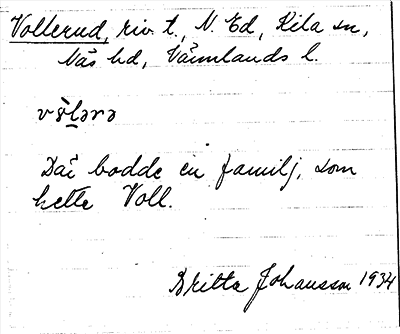 Vollerud, riv. t., N. Ed, Kila sn,
Näs hd, Värmlands l.
Där bodde en familj, som
hette Voll.
Britta Johansson 1934